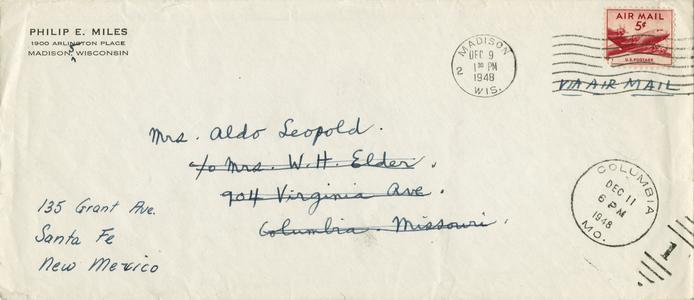 PHILIP E. MILES
1900 ARLINGTON PLACE
MADISON, WISCONSIN
5
MADISON
DEC 9
1 30 PM
1948
2
WIS.
AIR MAIL
5¢
U.S. POSTAGE
VIA AIR MAIL
Mrs. Aldo Leopold.
c/o Mrs. W. H. Elder.
904 Virginia Ave.
Columbia. Missouri.
135 Grant Ave.
Santa Fe
New Mexico
COLUMBIA
DEC 11
6 PM
1948
MO.
1